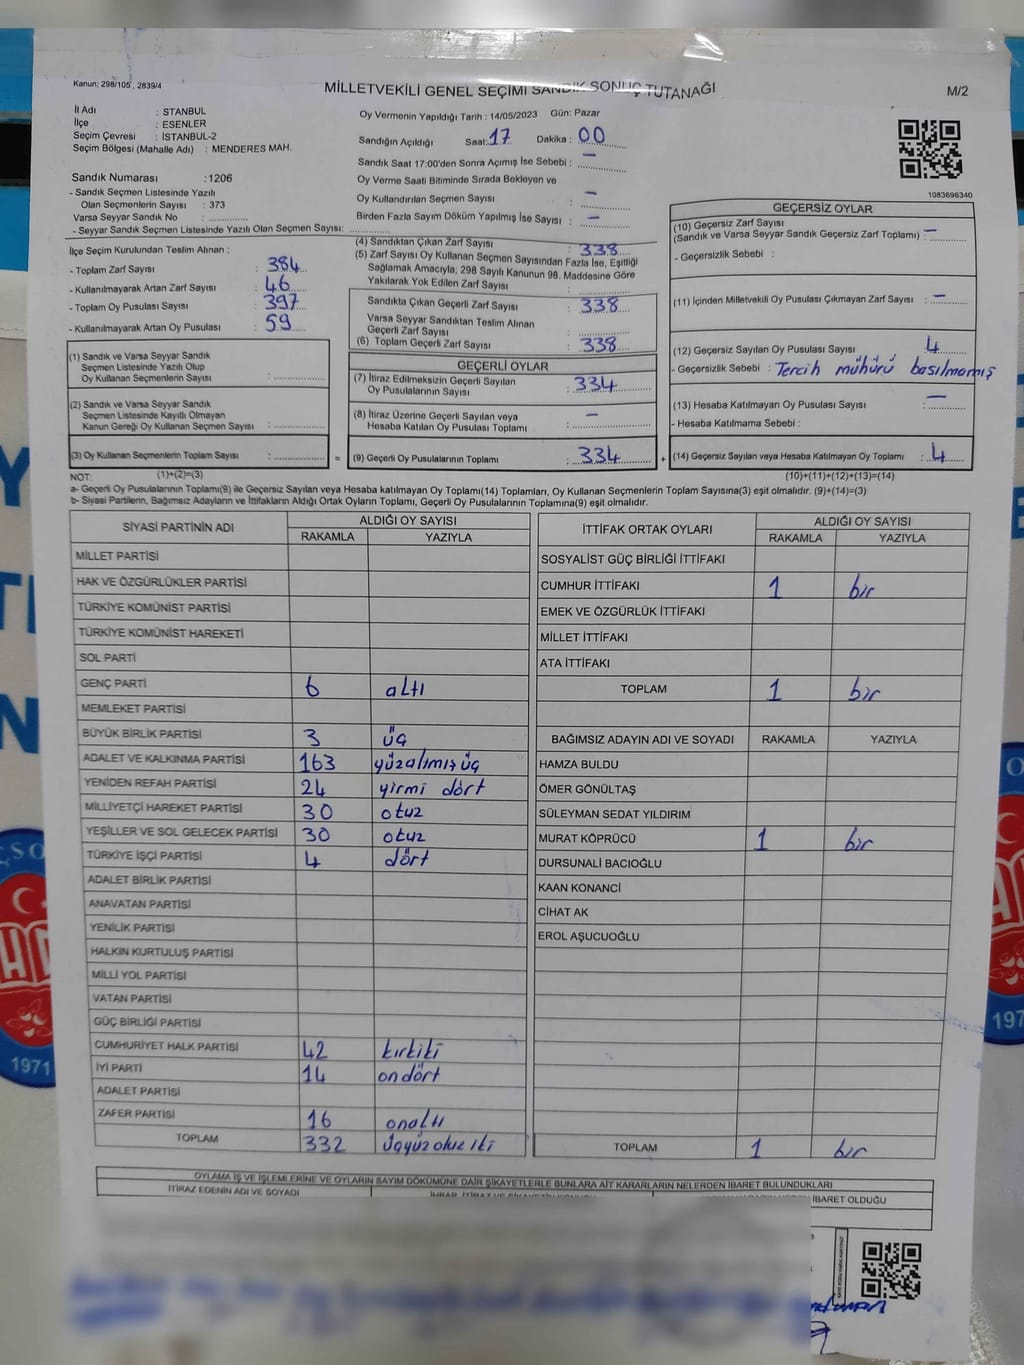 Kanun; 298/105 , 2839/4
MİLLETVEKİLİ GENEL SEÇİMİ SANDIK SONUÇ TUTANAĞI
M/2
İl Adı : STANBUL
İlçe : ESENLER
Seçim Çevresi : İSTANBUL-2
Seçim Bölgesi (Mahalle Adı) : MENDERES MAH.
Sandık Numarası : 1206
- Sandık Seçmen Listesinde Yazılı
Olan Seçmenlerin Sayısı : 373
Varsa Seyyar Sandık No :
- Seyyar Sandık Seçmen Listesinde Yazılı Olan Seçmen Sayısı:
Oy Vermenin Yapıldığı Tarih : 14/05/2023 Gün: Pazar
Sandığın Açıldığı Saat: 17 Dakika : 00
Sandık Saat 17:00'den Sonra Açımış İse Sebebi : -
Oy Verme Saati Bitiminde Sırada Bekleyen ve
Oy Kullandırılan Seçmen Sayısı : -
Birden Fazla Sayım Döküm Yapılmış İse Sayısı : -
1083696340
İlçe Seçim Kurulundan Teslim Alınan ;
- Toplam Zarf Sayısı : 384
- Kullanılmayarak Artan Zarf Sayısı : 46
- Toplam Oy Pusulası Sayısı : 397
- Kullanılmayarak Artan Oy Pusulası : 59
(1) Sandık ve Varsa Seyyar Sandık
Seçmen Listesinde Yazılı Olup
Oy Kullanan Seçmenlerin Sayısı :
(2) Sandık ve Varsa Seyyar Sandık
Seçmen Listesinde Kayıtlı Olmayan
Kanun Gereği Oy Kullanan Seçmen Sayısı :
(3) Oy Kullanan Seçmenlerin Toplam Sayısı : =
(1)+(2)=(3)
(4) Sandıktan Çıkan Zarf Sayısı : 338
(5) Zarf Sayısı Oy Kullanan Seçmen Sayısından Fazla İse, Eşitliği
Sağlamak Amacıyla; 298 Sayılı Kanunun 98. Maddesine Göre
Yakılarak Yok Edilen Zarf Sayısı :
Sandıkta Çıkan Geçerli Zarf Sayısı : 338
Varsa Seyyar Sandıktan Teslim Alınan
Geçerli Zarf Sayısı :
(6) Toplam Geçerli Zarf Sayısı : 338
GEÇERLİ OYLAR
(7) İtiraz Edilmeksizin Geçerli Sayılan
Oy Pusulalarının Sayısı : 334
(8) İtiraz Üzerine Geçerli Sayılan veya
Hesaba Katılan Oy Pusulası Toplamı : -
(9) Geçerli Oy Pusulalarının Toplamı : 334 +
GEÇERSİZ OYLAR
(10) Geçersiz Zarf Sayısı
(Sandık ve Varsa Seyyar Sandık Geçersiz Zarf Toplamı) : -
- Geçersizlik Sebebi :
(11) İçinden Milletvekili Oy Pusulası Çıkmayan Zarf Sayısı : -
(12) Geçersiz Sayılan Oy Pusulası Sayısı : 4
- Geçersizlik Sebebi : Tercih mühürü basılmamış
(13) Hesaba Katılmayan Oy Pusulası Sayısı : -
- Hesaba Katılmama Sebebi :
(14) Geçersiz Sayılan veya Hesaba Katılmayan Oy Toplamı : 4
(10)+(11)+(12)+(13)=(14)
NOT:
a- Geçerli Oy Pusulalarının Toplamı(9) ile Geçersiz Sayılan veya Hesaba katılmayan Oy Toplamı(14) Toplamları, Oy Kullanan Seçmenlerin Toplam Sayısına(3) eşit olmalıdır. (9)+(14)=(3)
b- Siyasi Partilerin, Bağımsız Adayların ve İttifakların Aldığı Ortak Oyların Toplamı, Geçerli Oy Pusulalarının Toplamına(9) eşit olmalıdır.
SİYASİ PARTİNİN ADI ALDIĞI OY SAYISI
RAKAMLA YAZIYLA
MİLLET PARTİSİ
HAK VE ÖZGÜRLÜKLER PARTİSİ
TÜRKİYE KOMÜNİST PARTİSİ
TÜRKİYE KOMÜNİST HAREKETİ
SOL PARTİ
GENÇ PARTİ 6 altı
MEMLEKET PARTİSİ
BÜYÜK BİRLİK PARTİSİ 3 üç
ADALET VE KALKINMA PARTİSİ 163 yüzalımış üç
YENİDEN REFAH PARTİSİ 24 yirmi dört
MİLLİYETÇİ HAREKET PARTİSİ 30 otuz
YEŞİLLER VE SOL GELECEK PARTİSİ 30 otuz
TÜRKİYE İŞÇİ PARTİSİ 4 dört
ADALET BİRLİK PARTİSİ
ANAVATAN PARTİSİ
YENİLİK PARTİSİ
HALKIN KURTULUŞ PARTİSİ
MİLLİ YOL PARTİSİ
VATAN PARTİSİ
GÜÇ BİRLİĞİ PARTİSİ
CUMHURİYET HALK PARTİSİ 42 kırkiki
İYİ PARTİ 14 ondört
ADALET PARTİSİ
ZAFER PARTİSİ 16 onaltı
TOPLAM 332 üçyüz otuz iki
İTTİFAK ORTAK OYLARI ALDIĞI OY SAYISI
RAKAMLA YAZIYLA
SOSYALİST GÜÇ BİRLİĞİ İTTİFAKI
CUMHUR İTTİFAKI 1 bir
EMEK VE ÖZGÜRLÜK İTTİFAKI
MİLLET İTTİFAKI
ATA İTTİFAKI
TOPLAM 1 bir
BAĞIMSIZ ADAYIN ADI VE SOYADI RAKAMLA YAZIYLA
HAMZA BULDU
ÖMER GÖNÜLTAŞ
SÜLEYMAN SEDAT YILDIRIM
MURAT KÖPRÜCÜ 1 bir
DURSUNALİ BACIOĞLU
KAAN KONANCİ
CİHAT AK
EROL AŞUCUOĞLU
TOPLAM 1 bir
OYLAMA İŞ VE İŞLEMLERİNE VE OYLARIN SAYIM DÖKÜMÜNE DAİR ŞİKAYETLERLE BUNLARA AİT KARARLARIN NELERDEN İBARET BULUNDUKLARI
İTİRAZ EDENİN ADI VE SOYADI
İBARET OLDUĞU
1971
197